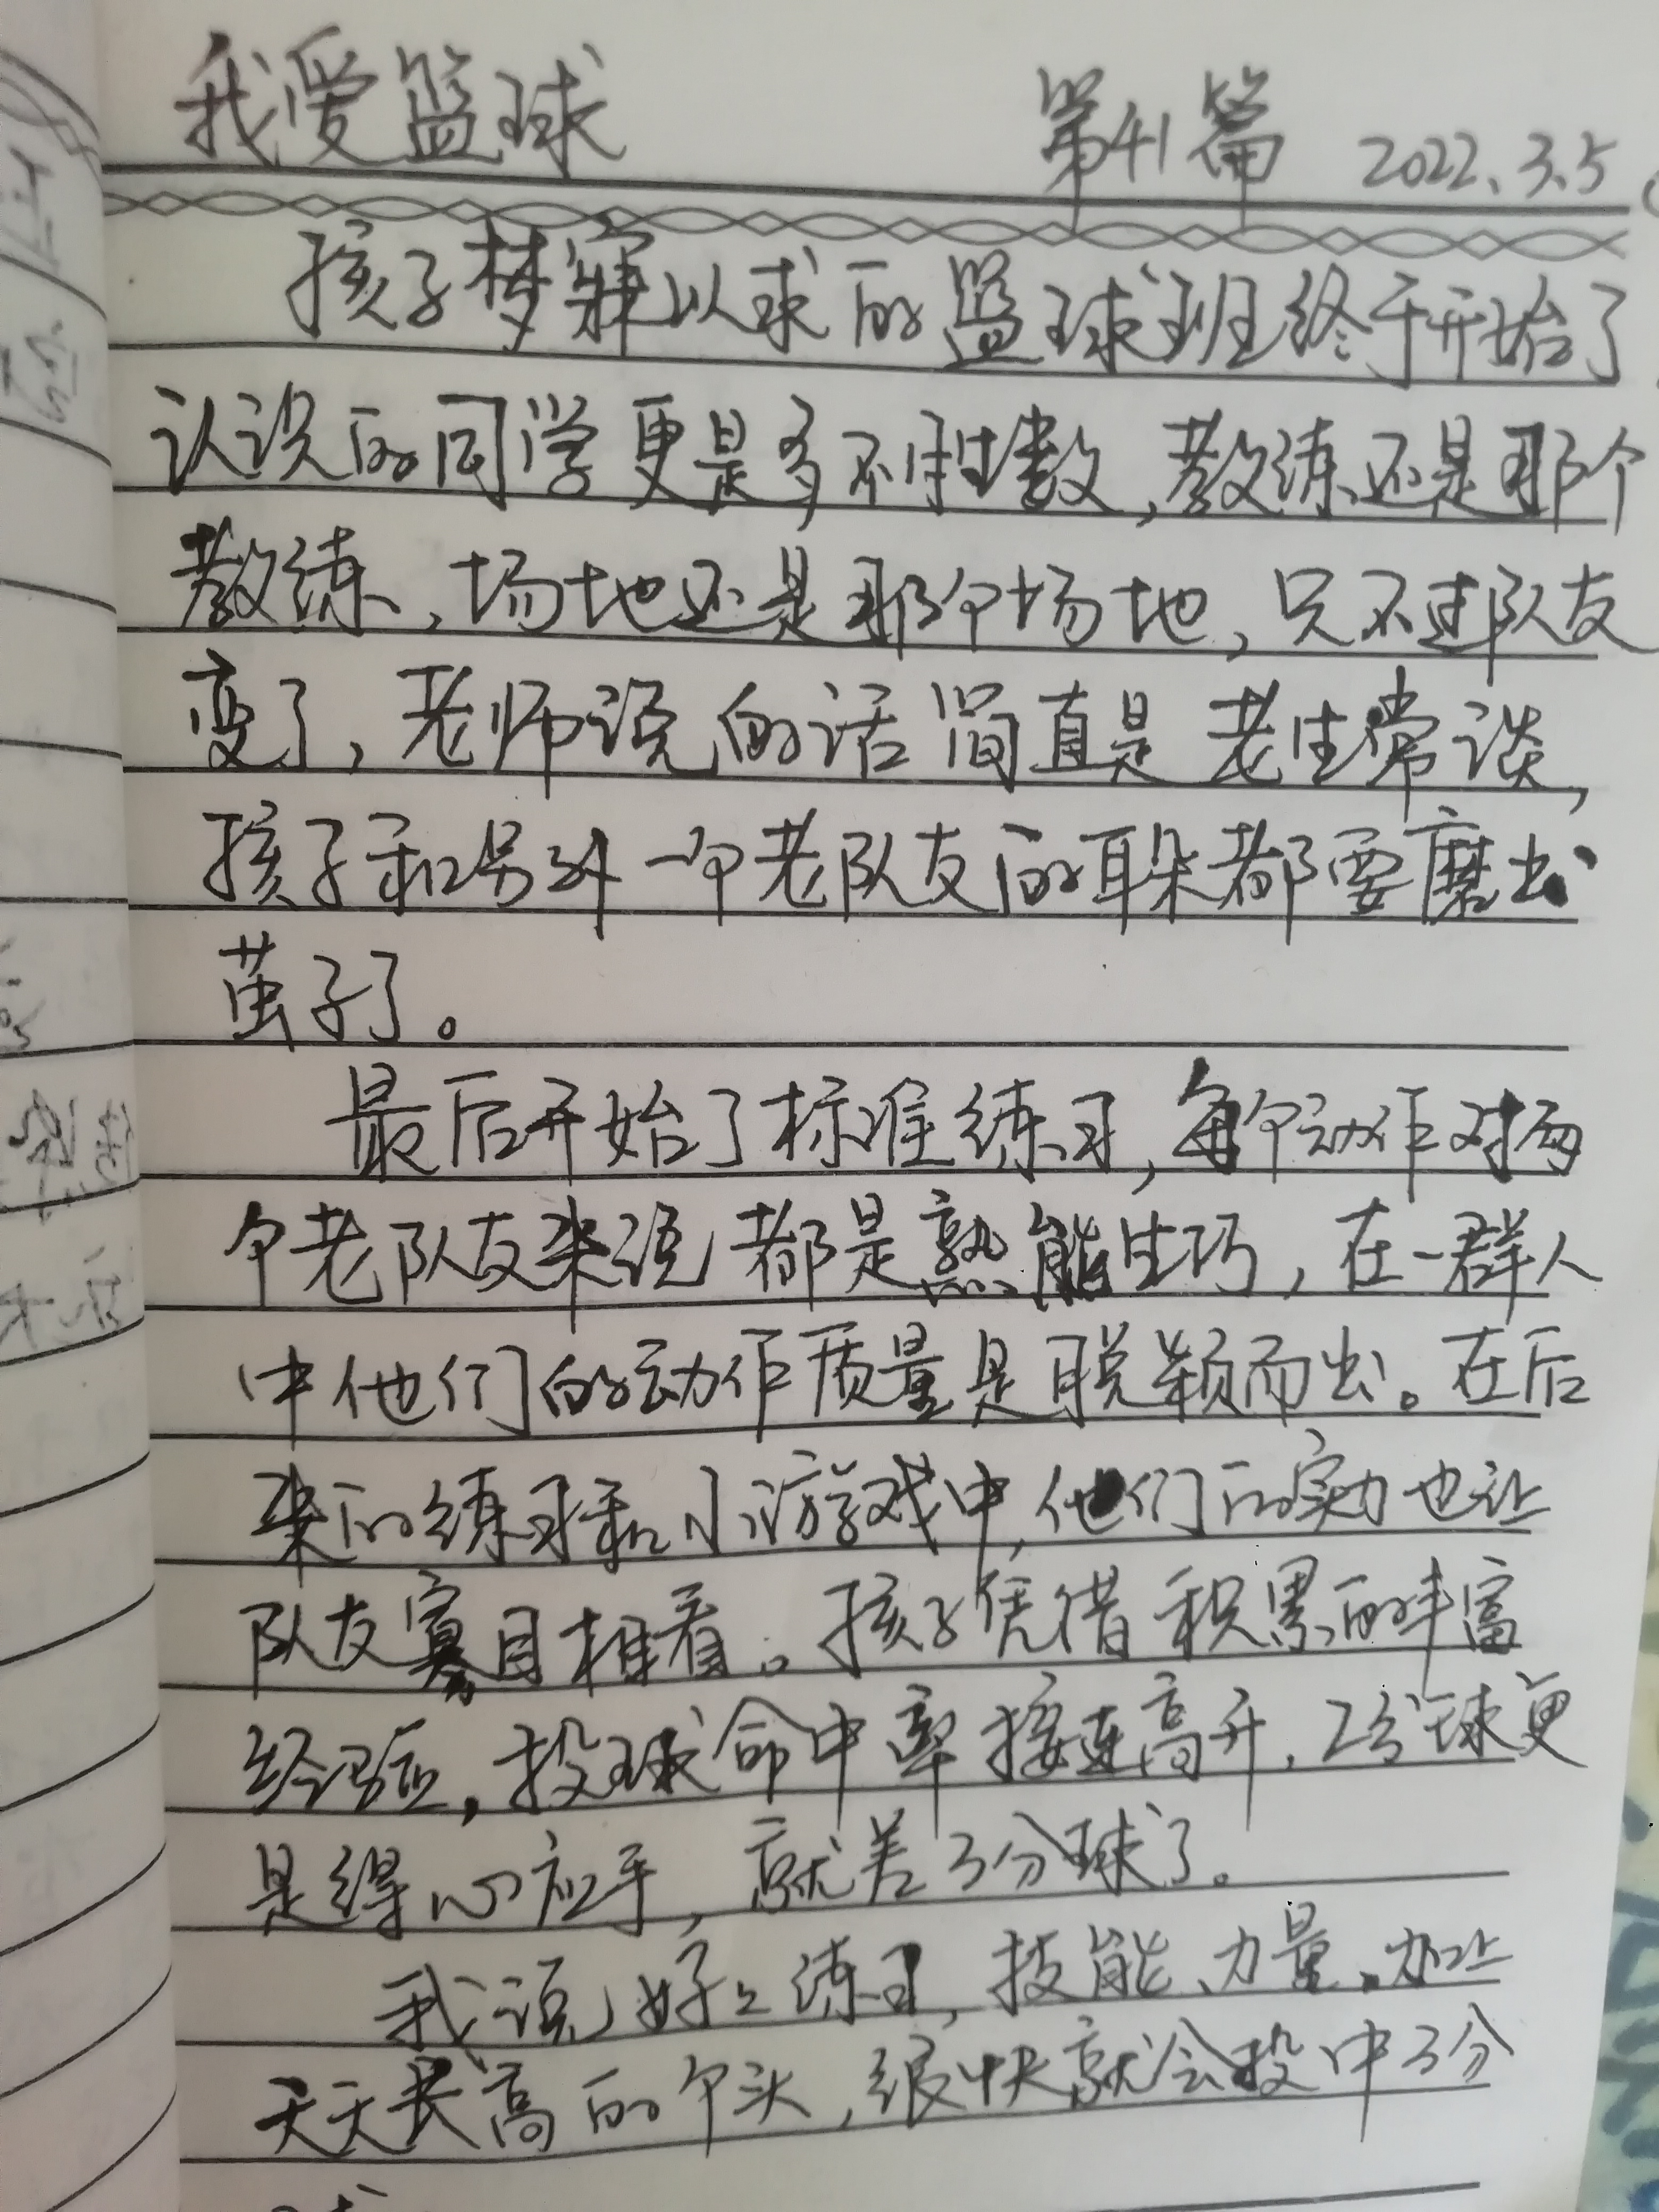 我爱篮球 第41篇 2022.3.5
孩子梦寐以求的篮球班终于开始了,
认识的同学更是多不胜数,教练还是那个
教练,场地还是那个场地,只不过队友
变了,老师说的话简直是老生常谈,
孩子和另外一个老队友的耳朵都要磨出
茧子了。
最后开始了标准练习,每个动作对两
个老队友来说都是熟能生巧,在一群人
中他们的动作质量是脱颖而出。在后
来的练习和小游戏中,他们的实力也让
队友寡目相看。孩子凭借积累的丰富
经验,投球命中率接连高升,2分球更
是得心应手,就差3分球了。
我说好々练习,技能、力量、加上
天天长高的个头,很快就会投中3分